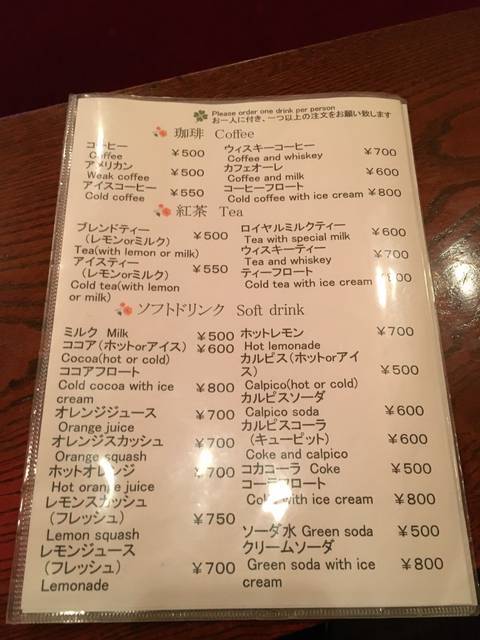 Please order one drink per person
お一人に付き、一つ以上の注文をお願い致します
珈琲 Coffee
コーヒー
Coffee ¥500
アメリカン
Weak coffee ¥500
アイスコーヒー
Cold coffee ¥550
ウィスキーコーヒー
Coffee and whiskey ¥700
カフェオーレ
Coffee and milk ¥600
コーヒーフロート
Cold coffee with ice cream ¥800
紅茶 Tea
ブレンドティー
(レモンorミルク) ¥500
Tea(with lemon or milk)
アイスティー
(レモンorミルク) ¥550
Cold tea(with lemon
or milk)
ロイヤルミルクティー
Tea with special milk ¥600
ウィスキーティー
Tea and whiskey ¥700
ティーフロート
Cold tea with ice cream
ソフトドリンク Soft drink
ミルク Milk ¥500
ココア(ホットorアイス) ¥600
Cocoa(hot or cold)
ココアフロート
Cold cocoa with ice ¥800
cream
オレンジジュース ¥700
Orange juice
オレンジスカッシュ ¥700
Orange squash
ホットオレンジ ¥700
Hot orange juice
レモンスカッシュ
(フレッシュ) ¥750
Lemon squash
レモンジュース
(フレッシュ) ¥700
Lemonade
ホットレモン ¥700
Hot lemonade
カルピス(ホットorアイ
ス) ¥500
Calpico(hot or cold)
カルピスソーダ
Calpico soda ¥600
カルピスコーラ
(キューピット) ¥600
Coke and calpico
コカコーラ Coke ¥500
コーラフロート
Coke with ice cream ¥800
ソーダ水 Green soda ¥500
クリームソーダ
Green soda with ice ¥800
cream